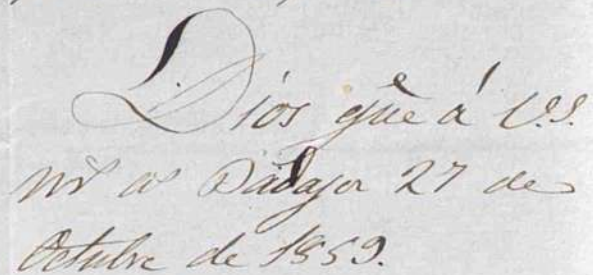 Dios gũe á V.S.
m.s a.s Badajoz 27 de
Octubre de 1859.